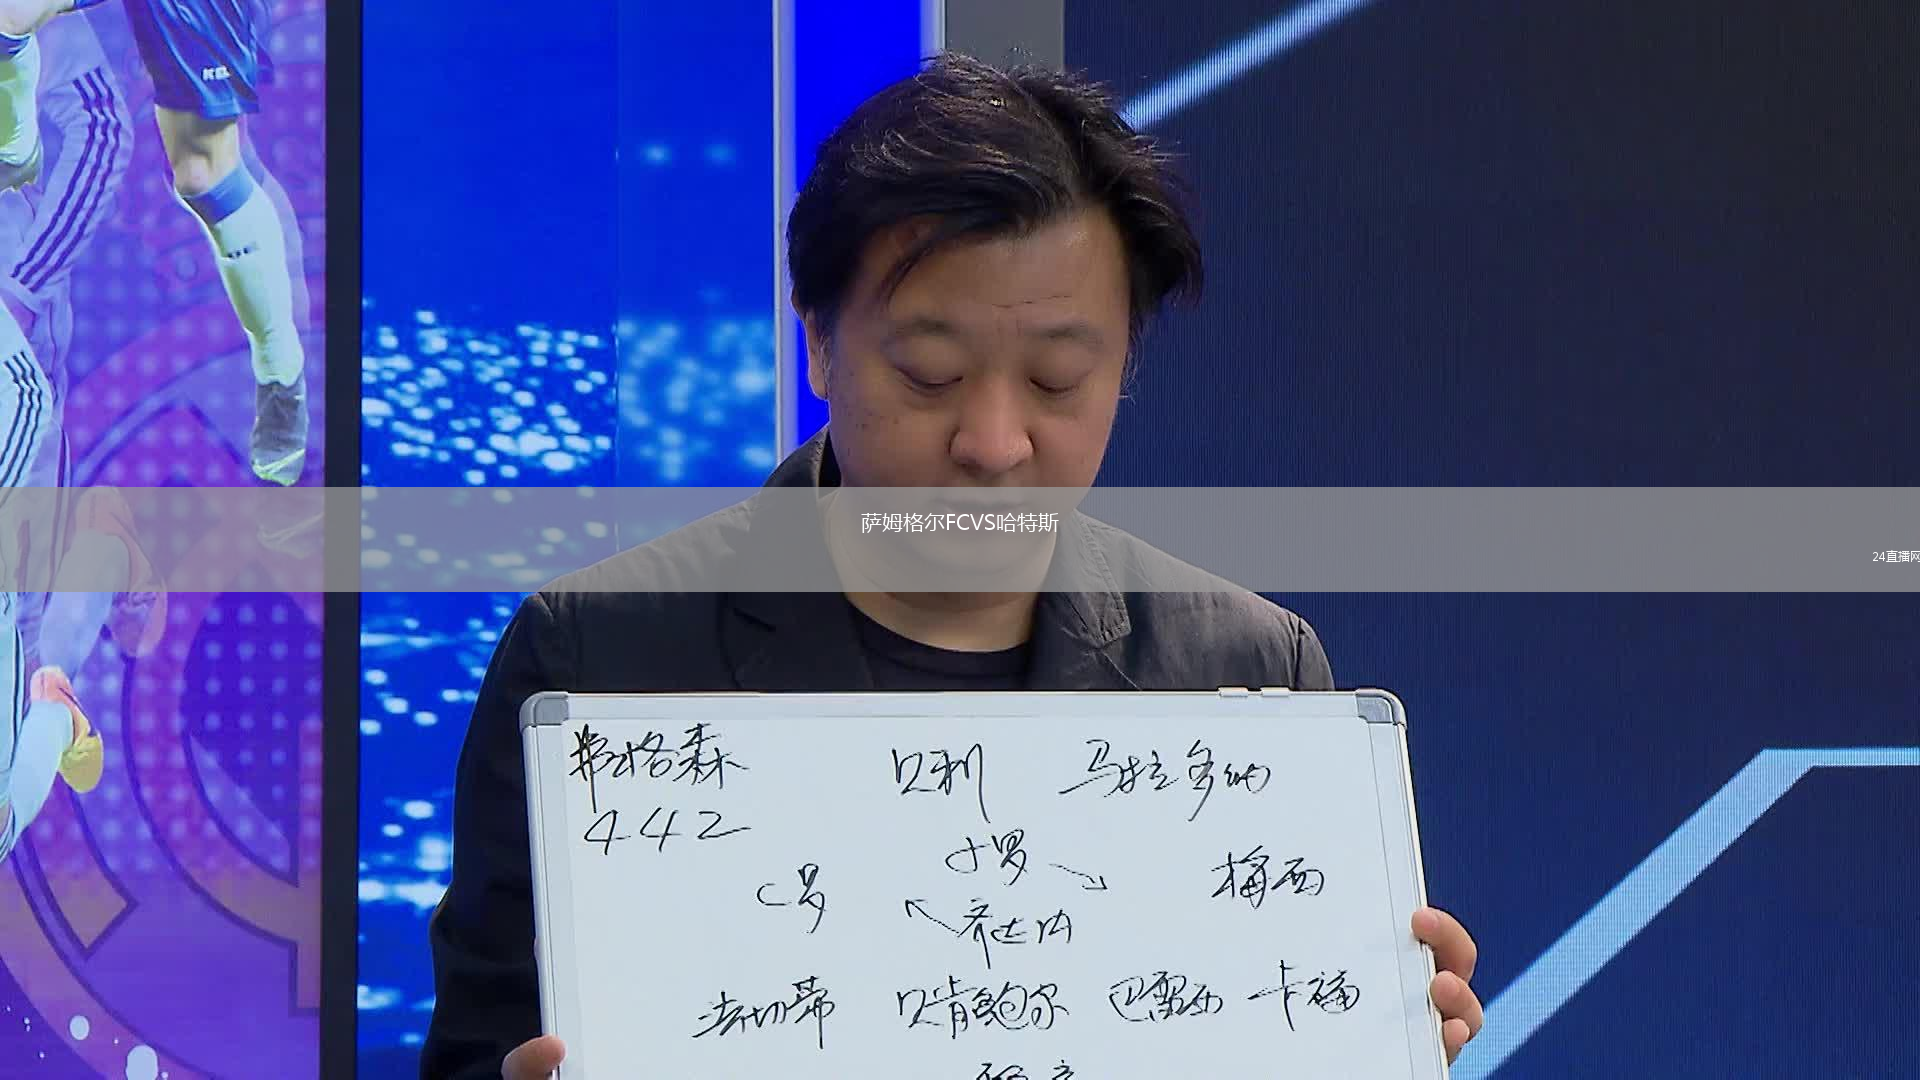 KEL
萨姆格尔FCVS哈特斯
24直播网
弗格森 贝利 马拉多纳
442
C罗 小罗 梅西
齐达内
法切蒂 贝肯鲍尔 巴雷西 卡福